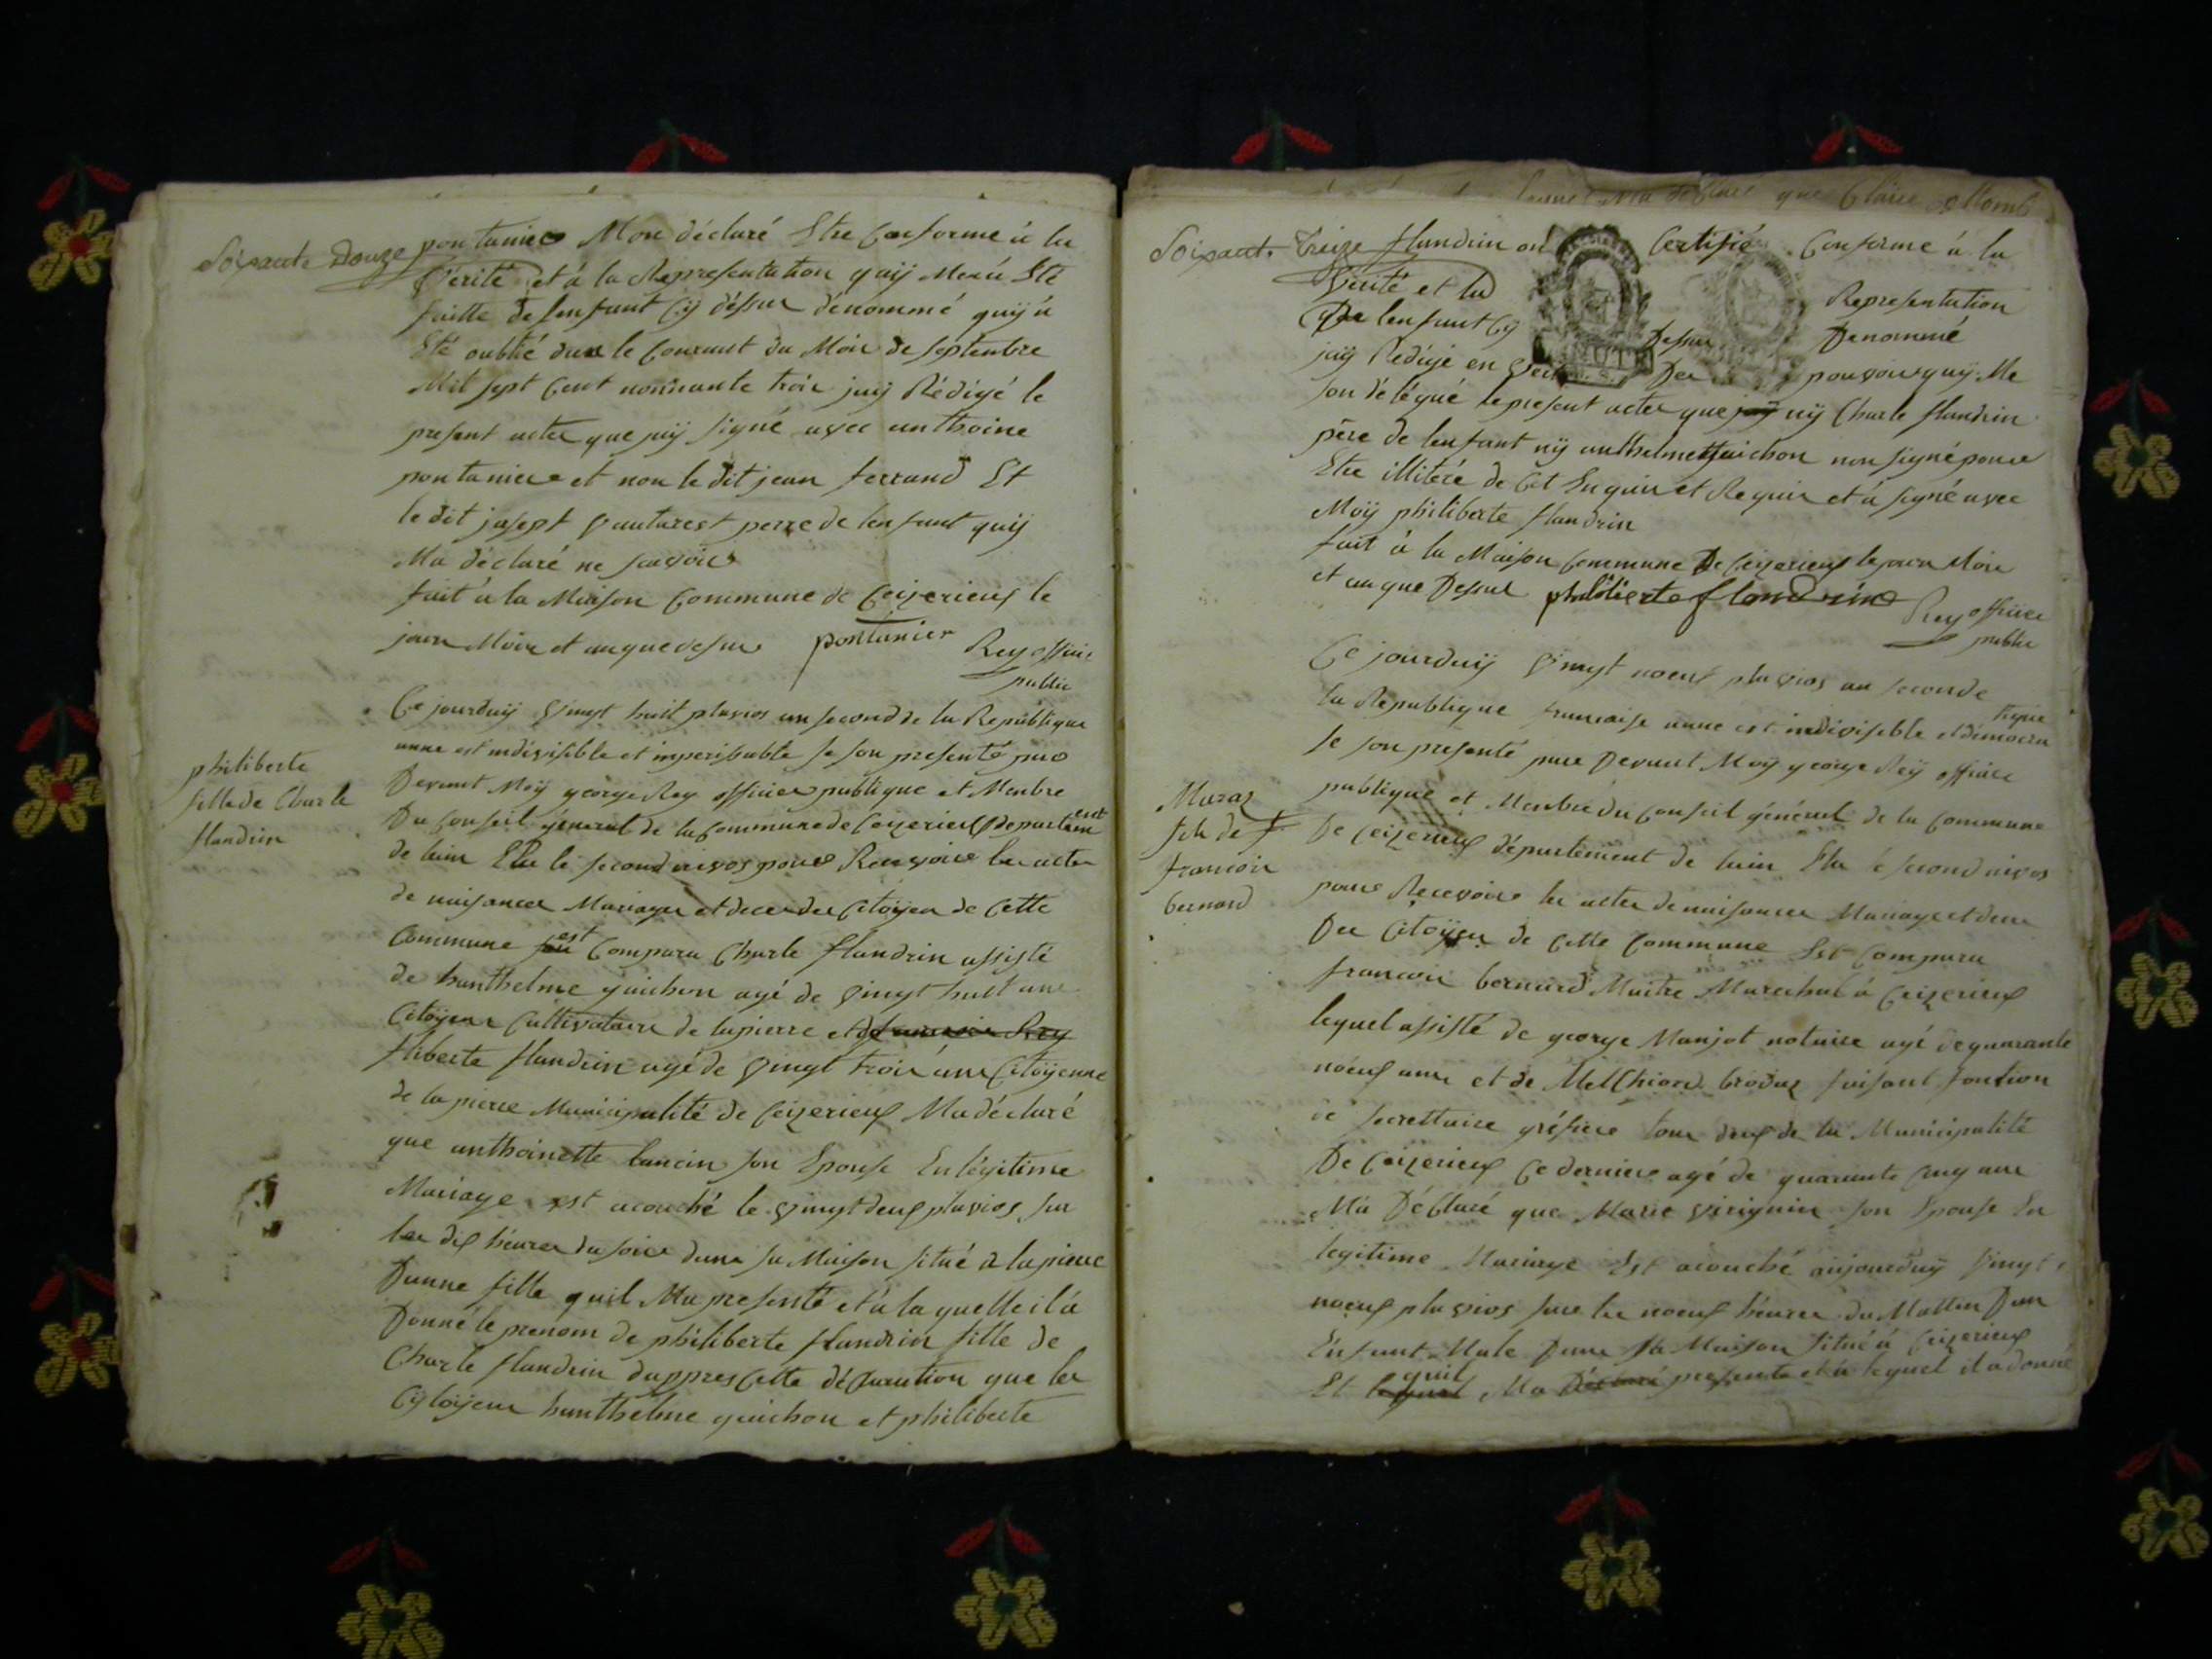 Soixante Douze
pontanier Mon déclaré Etre Conforme à la
Vérité et à la Représentation quij Men à Eté
faitte de lenfant Cy déssus dénommé quij à
Eté oublié dans le Courant du Mois de septenbre
Mil sept Cent nonnante trois jaij Rédigé le
present acter que jaij signé avec anthoine
pontanier et non le dit jean ferrand Et
le dit josept perre de lenfant quij
Ma déclaré ne scavoir
fait à la Maison Commune de Ceizerieux le
jour Mois et anque desus pontanier Rey officie
public
Ce jourduij Vingt huit pluvios an second de la République
unne est indivisible et imperisable se son presenté par
Devant Moij george Rey officier publique et Menbre
Du Conseil général de la Commune de Ceizerieux departement
de lain Elu le second nivos pour Recevoir les acter
de naisances Mariages et deces des Citoÿen de Cette
Commune est Comparu Charle flandrin assisté
de hanthelme guichon agé de Vingt huit ans
Citoÿens Cultivateurs de lapierre et de francois Rey
fliberte flandrin agé de Vingt trois ans Citoÿenne
de lapierre Municipalité de Ceizerieux Ma déclaré
que anthoinette lancin son Epouse En légitime
Mariage est acouché le Vingt deux pluvios sur
les dix héures du soire dans sa Maison situé a lapierre
Dunne fille quil Ma presenté et à la quelle il à
Donné le prenom de philiberte flandrin fille de
Charle flandrin dappres Cette déClaration que les
Cytoÿens hanthelme guichon et philiberte
philiberte
fille de Charle
flandrin
que Claire
Soixante Treize
flandrin on Certifié Conforme à la
Vérité et la Representation
De lenfant Cy Dessus Denommé
jaij Rédigé en Des pouvoirs quij Me
son délégué le present acter que jaij nij Charle flandrin
père de lenfant nij anthelme guichon non signé pour
Etre illiteré de Cet Enquis et Requis et à signé avec
Moÿ philiberte flandrin
fait à la Maison Commune De Ceizerieux le jour Mois
et an que Dessus philiberte flandrin Rey officier
public
Ce jourduij Vingt noeuf pluvios an second de
la Republique francaise unne est indivisible et démocratique
se son presenté pare Devant Moÿ george Reÿ officier
publique et Menbre du Conseil général de la Commune
De Ceizerieux département de lain Elu le second nivos
pour Recevoire les acter de naisances Mariage et deces
Des Citoÿen de Cette Commune Est Comparu
francois bernard Maitre Marechal à Ceizerieux
lequel assisté de george Manjot notaire agé de quarante
noeuf ans et de MelChiord brodaz faisant fontion
de secrettaire gréfiere tous deux de la Municipalité
De Ceizerieux Ce derniere agé de quarante Cinq ans
Mà DéClaré que Marie Virignin son Epouse En
legitime Mariage Est acouché aujourduij Vingt
noeuf pluvios sur les noeuf héures du Mattin Dun
Enfant Male Dans sa Maison situé à Ceizerieux
Et lequel quil Ma Déclaré presenté et à lequel il a donné
Maraz
fils de f
francois
bernard